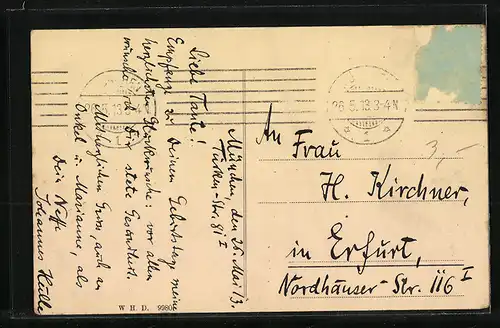 München, den 25. Mai 13.
Türken-Str. 81 I
Liebe Tante!
Empfange zu Deinem Geburtstag meine
herzlichsten Glückwünsche: vor allem
wünsche ich Dir stete Gesundheit.
Mit herzlichem Gruss, auch an
Onkel u. Marianne, als
Dein Neffe
Johannes
26.5.13.3-4N
An
Frau
H. Kirchner,
in Erfurt,
Nordhäuser-Str. 116 I
3,-
W. H. D. 9980